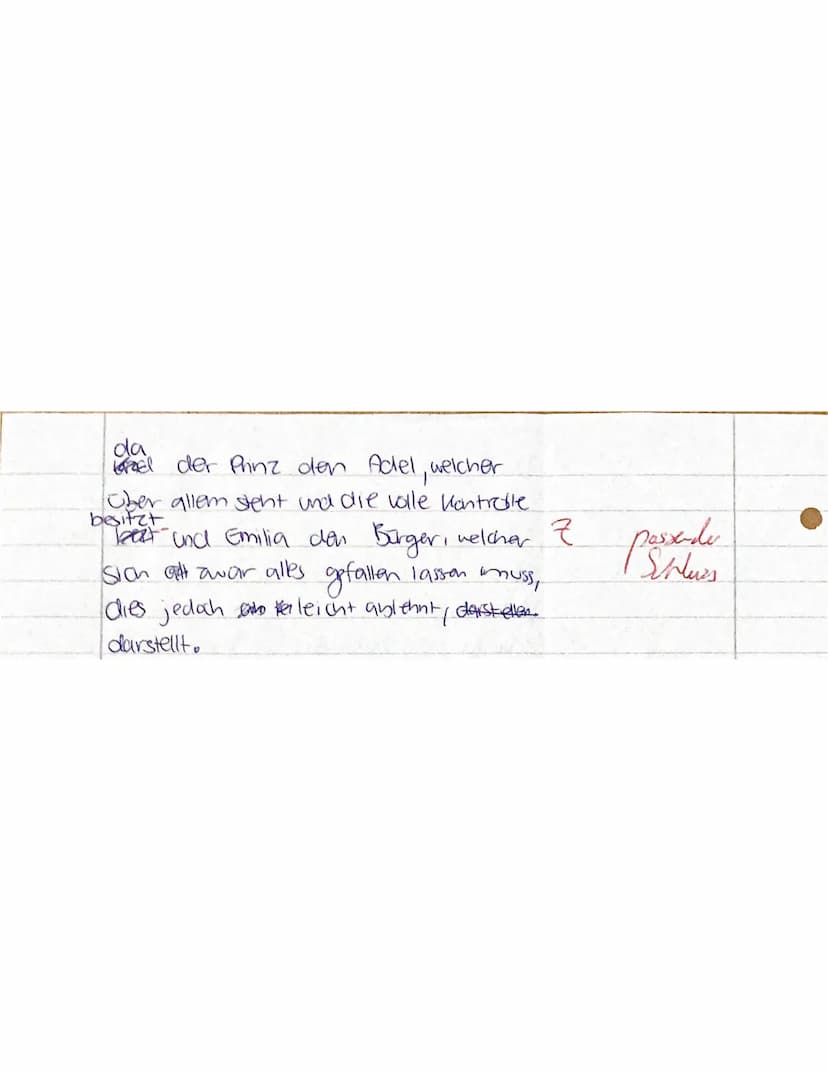 da
der Prinz den Adel, welcher
über allem steht und die volle Kontrolle
besitzt
und Emilia den Bürger, welcher Z passender
sich zwar alles gefallen lassen muss, Schluss
dies jedoch leicht ablehnt, darstellen
darstellt.